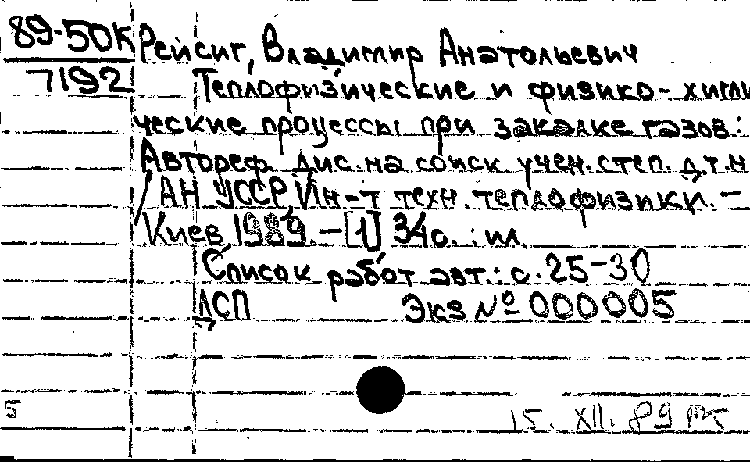 89-50К
7192
Рейсиг, Владимир Анатольевич
Теплофизические и физико-хими
ческие процессы при закалке газов:
Автореф. дис. на соиск. учен. степ. д.т.н
/АН УССР, Ин-т техн. теплофизики. -
Киев 1989. - [1] 34с. : ил.
Список работ авт.: с. 25-30
ДСП Экз № 000005
5
15. XII. 89